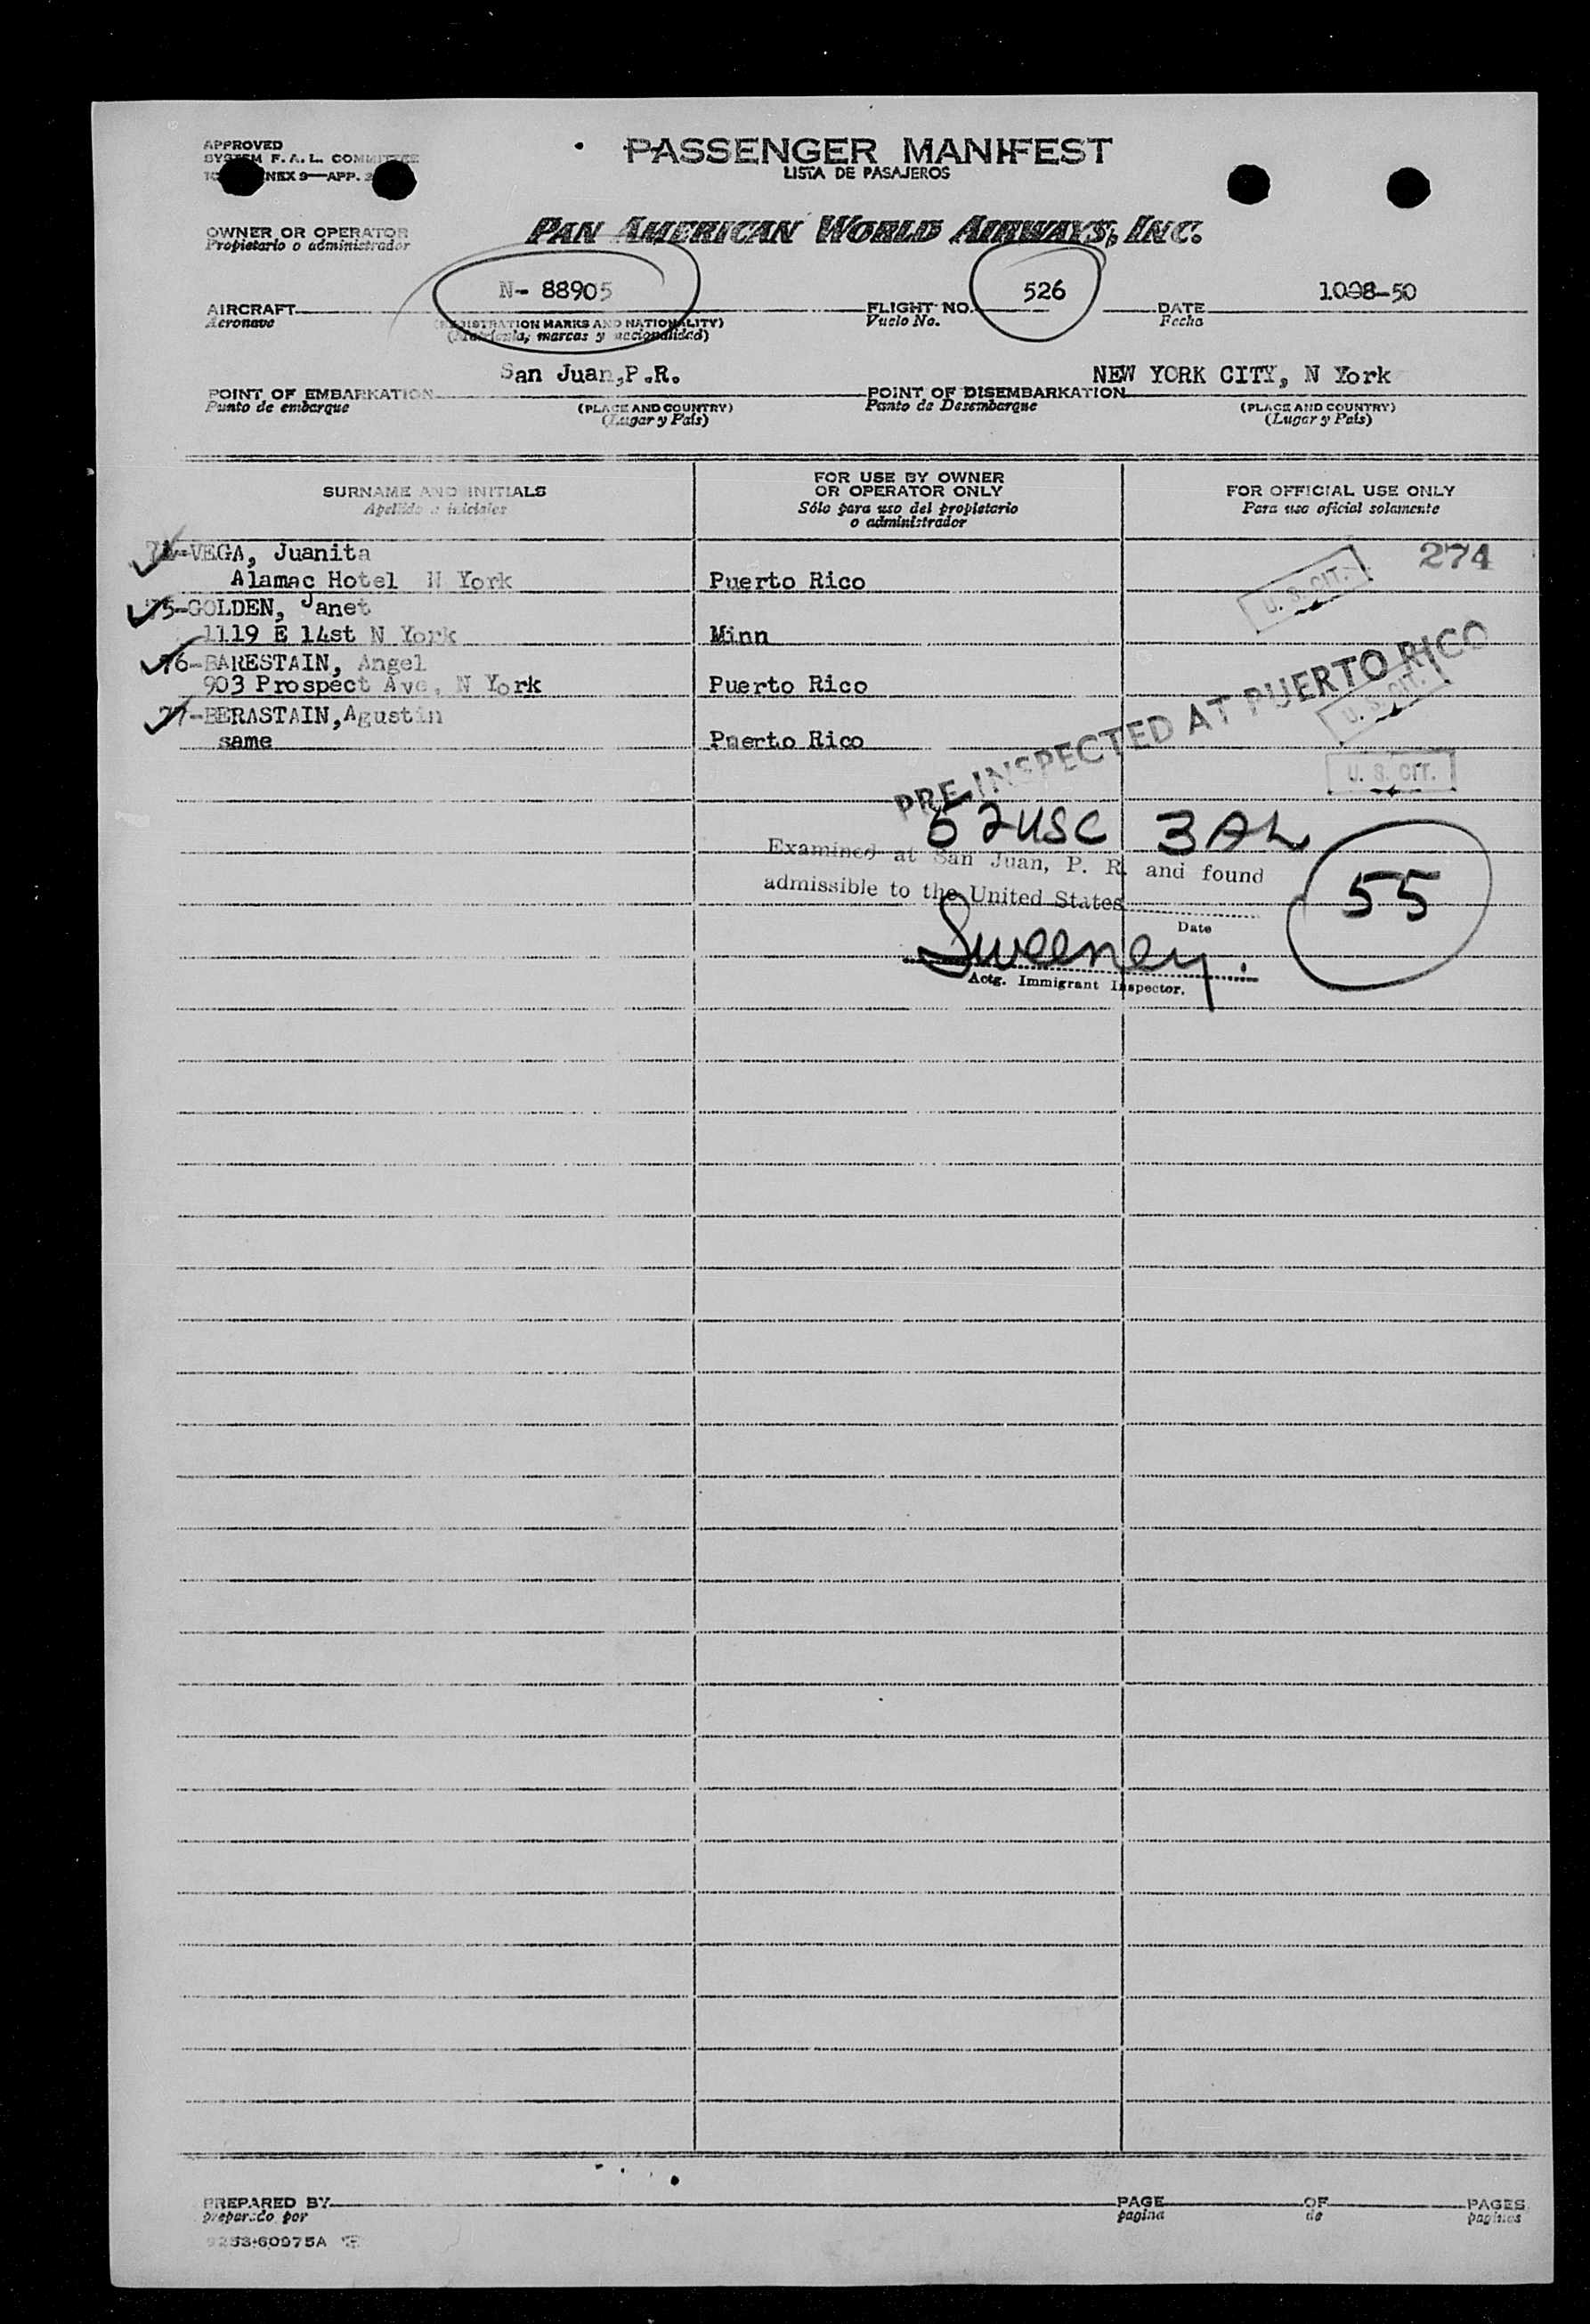 APPROVED
PASSENGER MANIFEST
SYSTEM F. A. L. COMMITTEE
LISTA DE PASAJEROS
ANNEX 9—APP. 2
OWNER OR OPERATOR
Propietario o administrador
PAN AMERICAN WORLD AIRWAYS, INC.
N- 88905
526
10-8-50
AIRCRAFT
FLIGHT NO.
DATE
Aeronave
(REGISTRATION MARKS AND NATIONALITY)
Vuelo No.
Fecha
(Matrícula, marcas y nacionalidad)
San Juan,P.R.
NEW YORK CITY, N York
POINT OF EMBARKATION
POINT OF DISEMBARKATION
Punto de embarque
(PLACE AND COUNTRY)
Punto de Desembarque
(PLACE AND COUNTRY)
(Lugar y País)
(Lugar y País)
SURNAME AND INITIALS
Apellido e iniciales
FOR USE BY OWNER
OR OPERATOR ONLY
Sólo para uso del propietario
o administrador
FOR OFFICIAL USE ONLY
Para uso oficial solamente
VEGA, Juanita
274
Alamac Hotel N York
Puerto Rico
U. S. CIT.
75-GOLDEN, Janet
1119 E 14st N York
Minn
76-BARESTAIN, Angel
903 Prospect Ave, N York
Puerto Rico
U. S. CIT.
77-BERASTAIN,Agustin
same
Puerto Rico
PRE-INSPECTED AT PUERTO RICO
U. S. CIT.
52USC 3AL
Examined at San Juan, P. R. and found
admissible to the United States
55
Date
Sweeney.
Actg. Immigrant Inspector.
PREPARED BY
PAGE
OF
PAGES
preparado por
pagina
de
paginas
9253-60975A